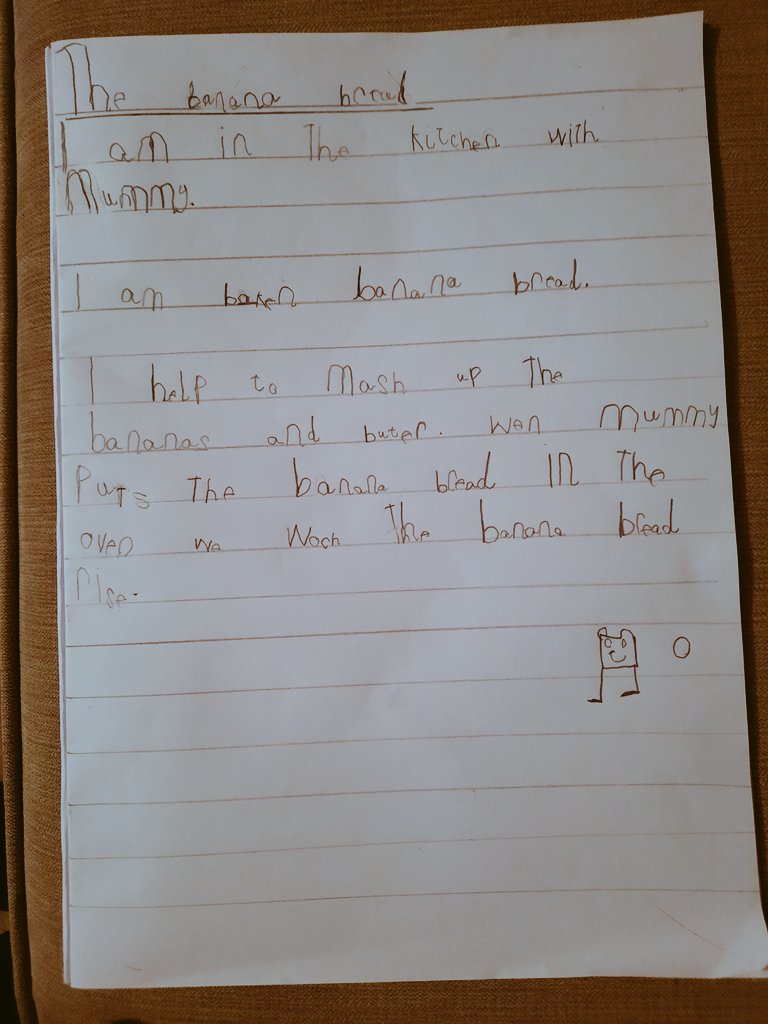 The banana bread
I am in The kitchen with
Mummy.
I am baken banana bread.
I help to mash up The
bananas and buter. wen mummy
Puts The banana bread in The
oven we woch The banana bread
rise.